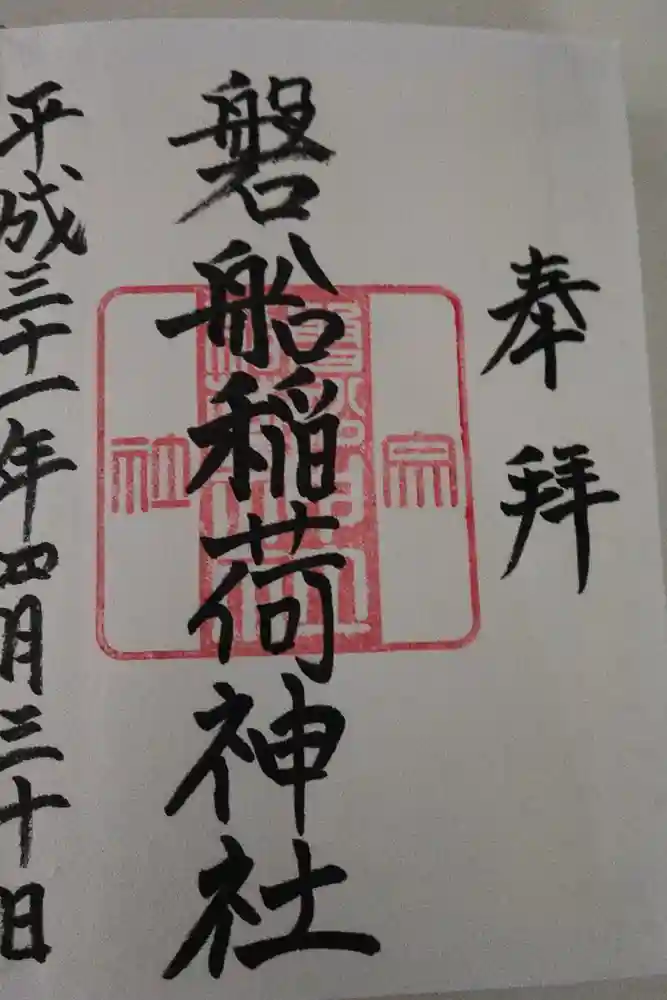 奉拝
磐船稲荷神社
宗
社
平成三十一年四月三十日